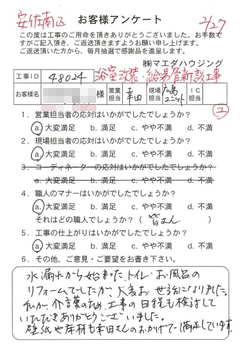 安佐南区 お客様アンケート 2/27
この度は工事のご用命を頂きありがとうございました。お手数で
すがご記入頂き、ご返送頂きますようお願い申し上げます。
ご返送頂いた方から、毎月抽選で感謝品を進呈します。
㈱マエダハウジング
工事ID 48024 浴室改装・給湯管新設工事
お客様名 様 営業担当 幸田 現場担当 広島ユニット
1. 営業担当者の応対はいかがでしたでしょうか?
a.大変満足 b.満足 c.やや不満 d.不満
2. 現場担当者の応対はいかがでしたでしょうか?
a.大変満足 b.満足 c.やや不満 d.不満
3. コーディネーターの応対はいかがでしたでしょうか?
a.大変満足 b.満足 c.やや不満 d.不満
4. 職人のマナーはいかがでしたでしょうか?
a.大変満足 b.満足 c.やや不満 d.不満
それはどの職人でしょうか?( 皆さん )
5. 工事の仕上がりはいかがでしたでしょうか?
a.大変満足 b.満足 c.やや不満 d.不満
6. その他、ご意見・ご感想をお聞かせ下さい。
水漏れから始まったトイレ・お風呂の
リフォームでしたが 大変お世話になりました。
私が介護のため工事の日程も検討して
いただきありがとうございました。
壁紙や床材も幸田さんのおかげで満足しています。